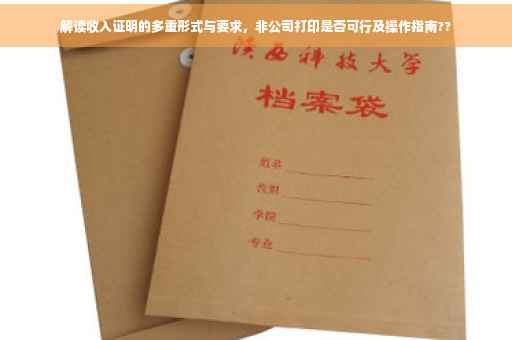 解读收入证明的多重形式与要求，非公司打印是否可行及操作指南??
陕西科技大学
档案袋
姓名
性别
学院
专业